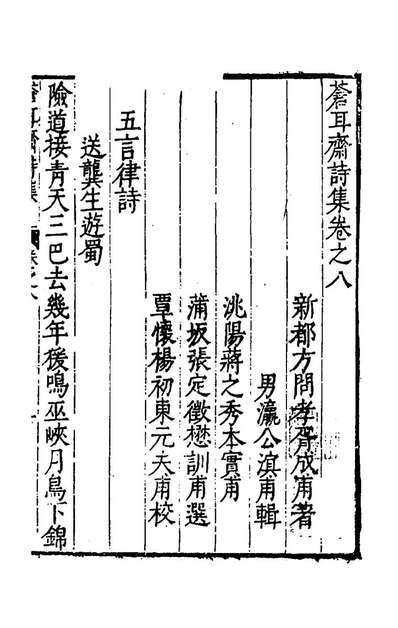 蒼耳齋詩集卷之八
新都方問孝胥成甫著
男瀛公滨甫輯
洮陽蔣之秀本實甫
蒲坂張定徵懋訓甫選
覃懷楊初東元夫甫校
五言律詩
送龔生遊蜀
險道接青天三巴去幾年猨鳴巫峽月鳥下錦